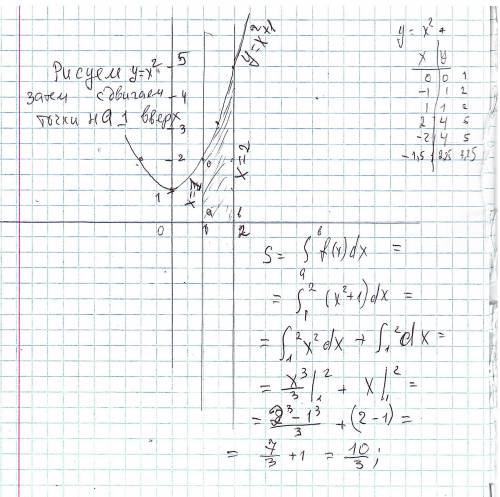 Рисуем y=x²
затем сдвигаем
точки на 1 вверх
5
4
3
2
1
0 1 2
a b
x=1
x=2
y = x² +
x y
0 0 1
-1 1 2
1 1 2
2 4 5
-2 4 5
-1,5 2,25 3,25
S = ∫ₐᵇ f(x)dx =
= ∫₁² (x²+1)dx =
= ∫₁² x²dx + ∫₁² dx =
= x³/3 |₁² + x |₁² =
= (2³ - 1³)/3 + (2-1) =
= 7/3 + 1 = 10/3;